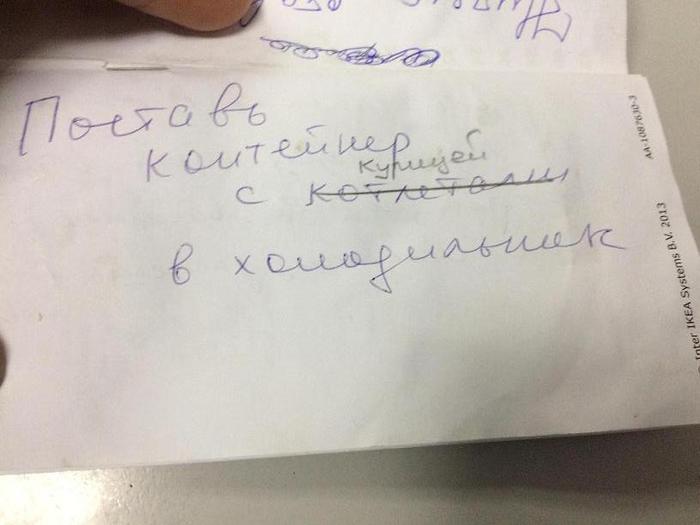 Поставь
контейнер
курицей
с котлетами
в холодильник
AA-1087630-3
Inter IKEA Systems B.V. 2013